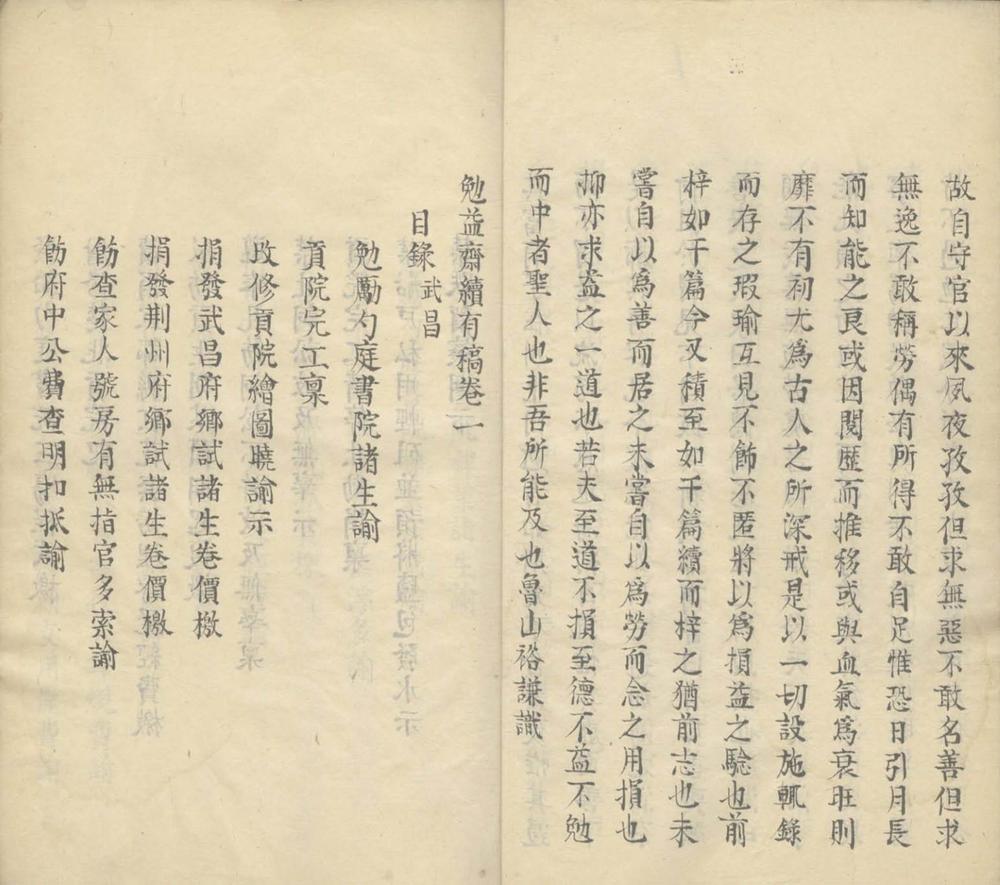 故自守官以來夙夜孜孜但求無惡不敢名善但求
無逸不敢稱勞偶有所得不敢自足惟恐日引月長
而知能之良或因閱歷而推移或與血氣爲衰旺則
靡不有初尤爲古人之所深戒是以一切設施輒錄
而存之瑕瑜互見不飾不匿將以爲損益之騐也前
梓如干篇今又積至如干篇續而梓之猶前志也未
嘗自以爲善而居之未嘗自以爲勞而念之用損也
抑亦求益之一道也若夫至道不損至德不益不勉
而中者聖人也非吾所能及也魯山裕謙識
勉益齋續存稿卷一
目錄 武昌
勉勵勺庭書院諸生諭
貢院完工稟
改修貢院繪圖曉諭示
捐發武昌府鄉試諸生卷價檄
捐發荆州府鄉試諸生卷價檄
飭查家人號房有無指官多索諭
飭府中公費查明扣抵諭